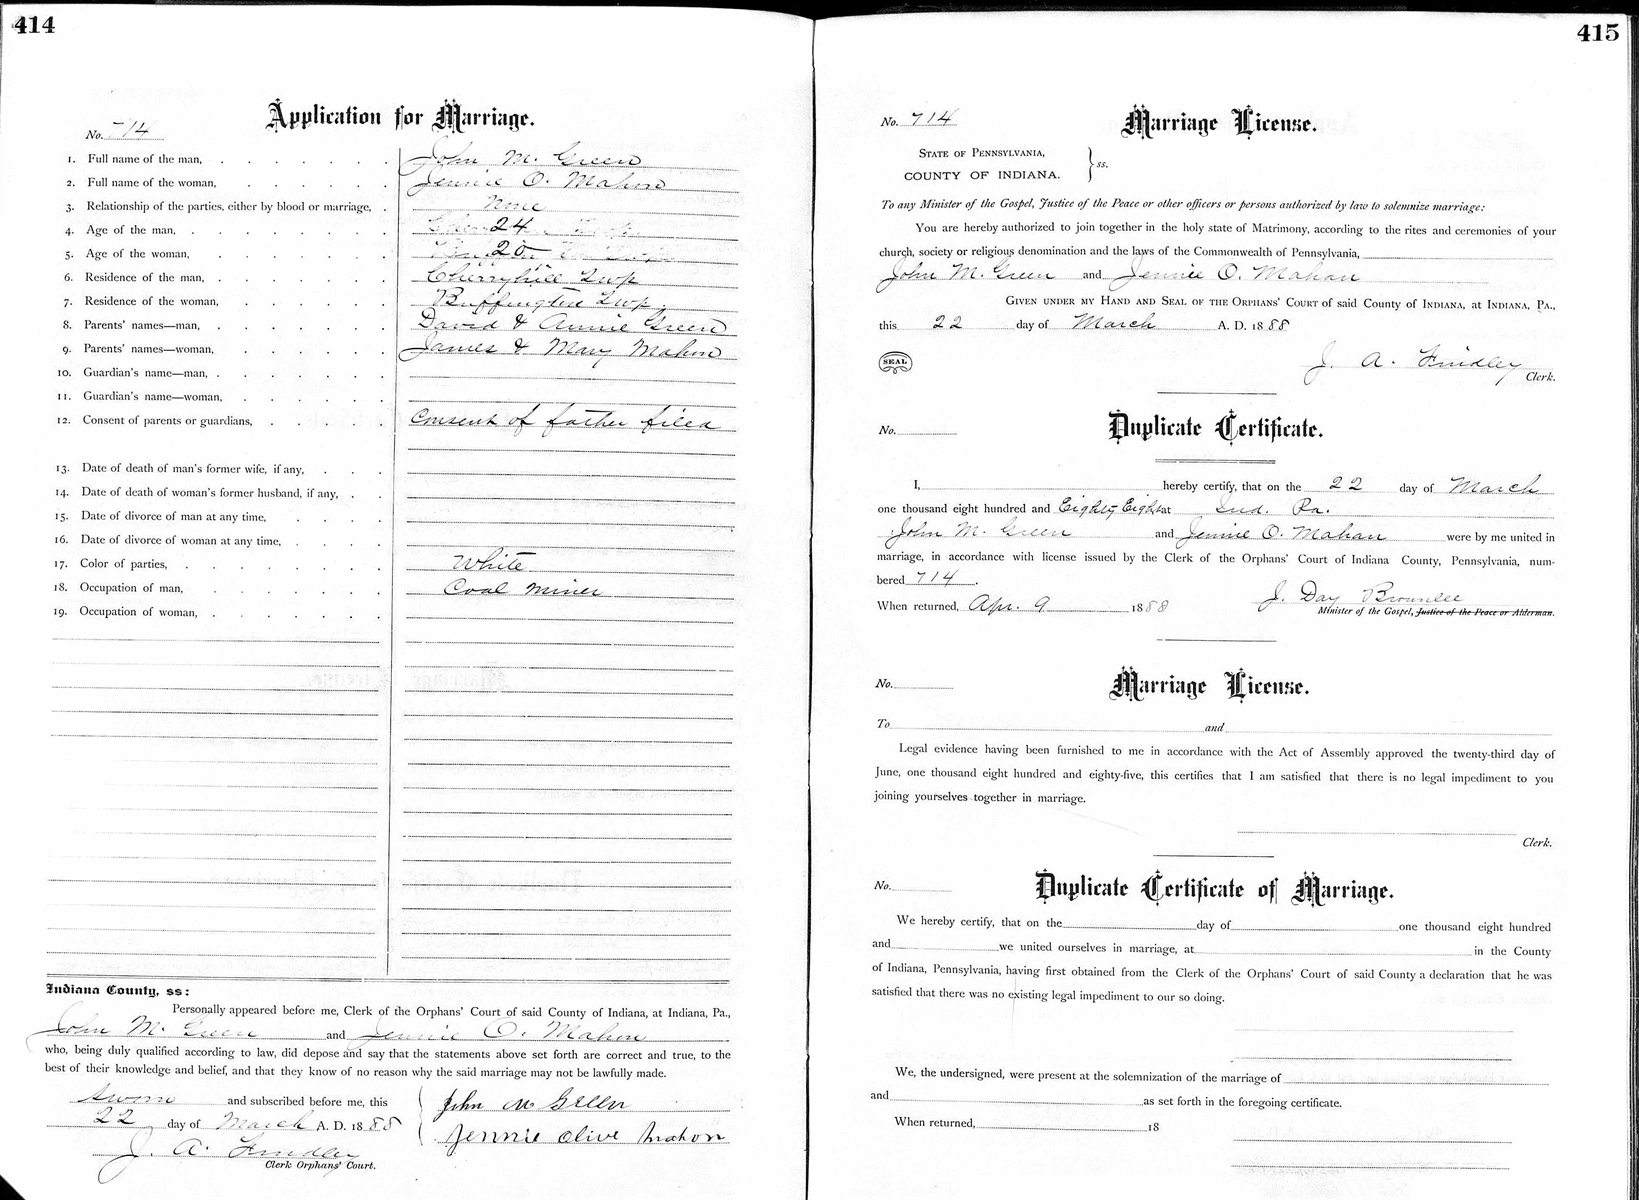 414
Application for Marriage.
No. 714
1. Full name of the man, John M. Green
2. Full name of the woman, Jennie O. Mahon
3. Relationship of the parties, either by blood or marriage, None
4. Age of the man, 24
5. Age of the woman, 20
6. Residence of the man, Cherryhill Twp
7. Residence of the woman, Buffington Twp.
8. Parents' names—man, David & Annie Green
9. Parents' names—woman, James & Mary Mahon
10. Guardian's name—man,
11. Guardian's name—woman,
12. Consent of parents or guardians, Consent of father filed
13. Date of death of man's former wife, if any,
14. Date of death of woman's former husband, if any,
15. Date of divorce of man at any time,
16. Date of divorce of woman at any time,
17. Color of parties, White
18. Occupation of man, Coal miner
19. Occupation of woman,
Indiana County, ss:
Personally appeared before me, Clerk of the Orphans' Court of said County of Indiana, at Indiana, Pa.,
John M. Green and Jennie O. Mahon
who, being duly qualified according to law, did depose and say that the statements above set forth are correct and true, to the
best of their knowledge and belief, and that they know of no reason why the said marriage may not be lawfully made.
Sworn and subscribed before me, this
22 day of March A. D. 1888
J. A. Findley
Clerk Orphans' Court.
John M Green
Jennie Olive Mahon
415
No. 714
Marriage License.
STATE OF PENNSYLVANIA,
COUNTY OF INDIANA. } ss.
To any Minister of the Gospel, Justice of the Peace or other officers or persons authorized by law to solemnize marriage:
You are hereby authorized to join together in the holy state of Matrimony, according to the rites and ceremonies of your
church, society or religious denomination and the laws of the Commonwealth of Pennsylvania,
John M. Green and Jennie O. Mahan
GIVEN UNDER MY HAND AND SEAL OF THE ORPHANS' COURT of said County of INDIANA, at INDIANA, PA.,
this 22 day of March A. D. 1888
SEAL
J. A. Findley
Clerk.
No.
Duplicate Certificate.
I, hereby certify, that on the 22 day of March
one thousand eight hundred and Eighty Eight at Ind. Pa.
John M. Green and Jennie O. Mahan were by me united in
marriage, in accordance with license issued by the Clerk of the Orphans' Court of Indiana County, Pennsylvania, num-
bered 714.
J. Day Brownlee
When returned, Apr. 9 1888
Minister of the Gospel, Justice of the Peace or Alderman.
No.
Marriage License.
To and
Legal evidence having been furnished to me in accordance with the Act of Assembly approved the twenty-third day of
June, one thousand eight hundred and eighty-five, this certifies that I am satisfied that there is no legal impediment to you
joining yourselves together in marriage.
Clerk.
No.
Duplicate Certificate of Marriage.
We hereby certify, that on the day of one thousand eight hundred
and we united ourselves in marriage, at in the County
of Indiana, Pennsylvania, having first obtained from the Clerk of the Orphans' Court of said County a declaration that he was
satisfied that there was no existing legal impediment to our so doing.
We, the undersigned, were present at the solemnization of the marriage of
and as set forth in the foregoing certificate.
When returned, 18